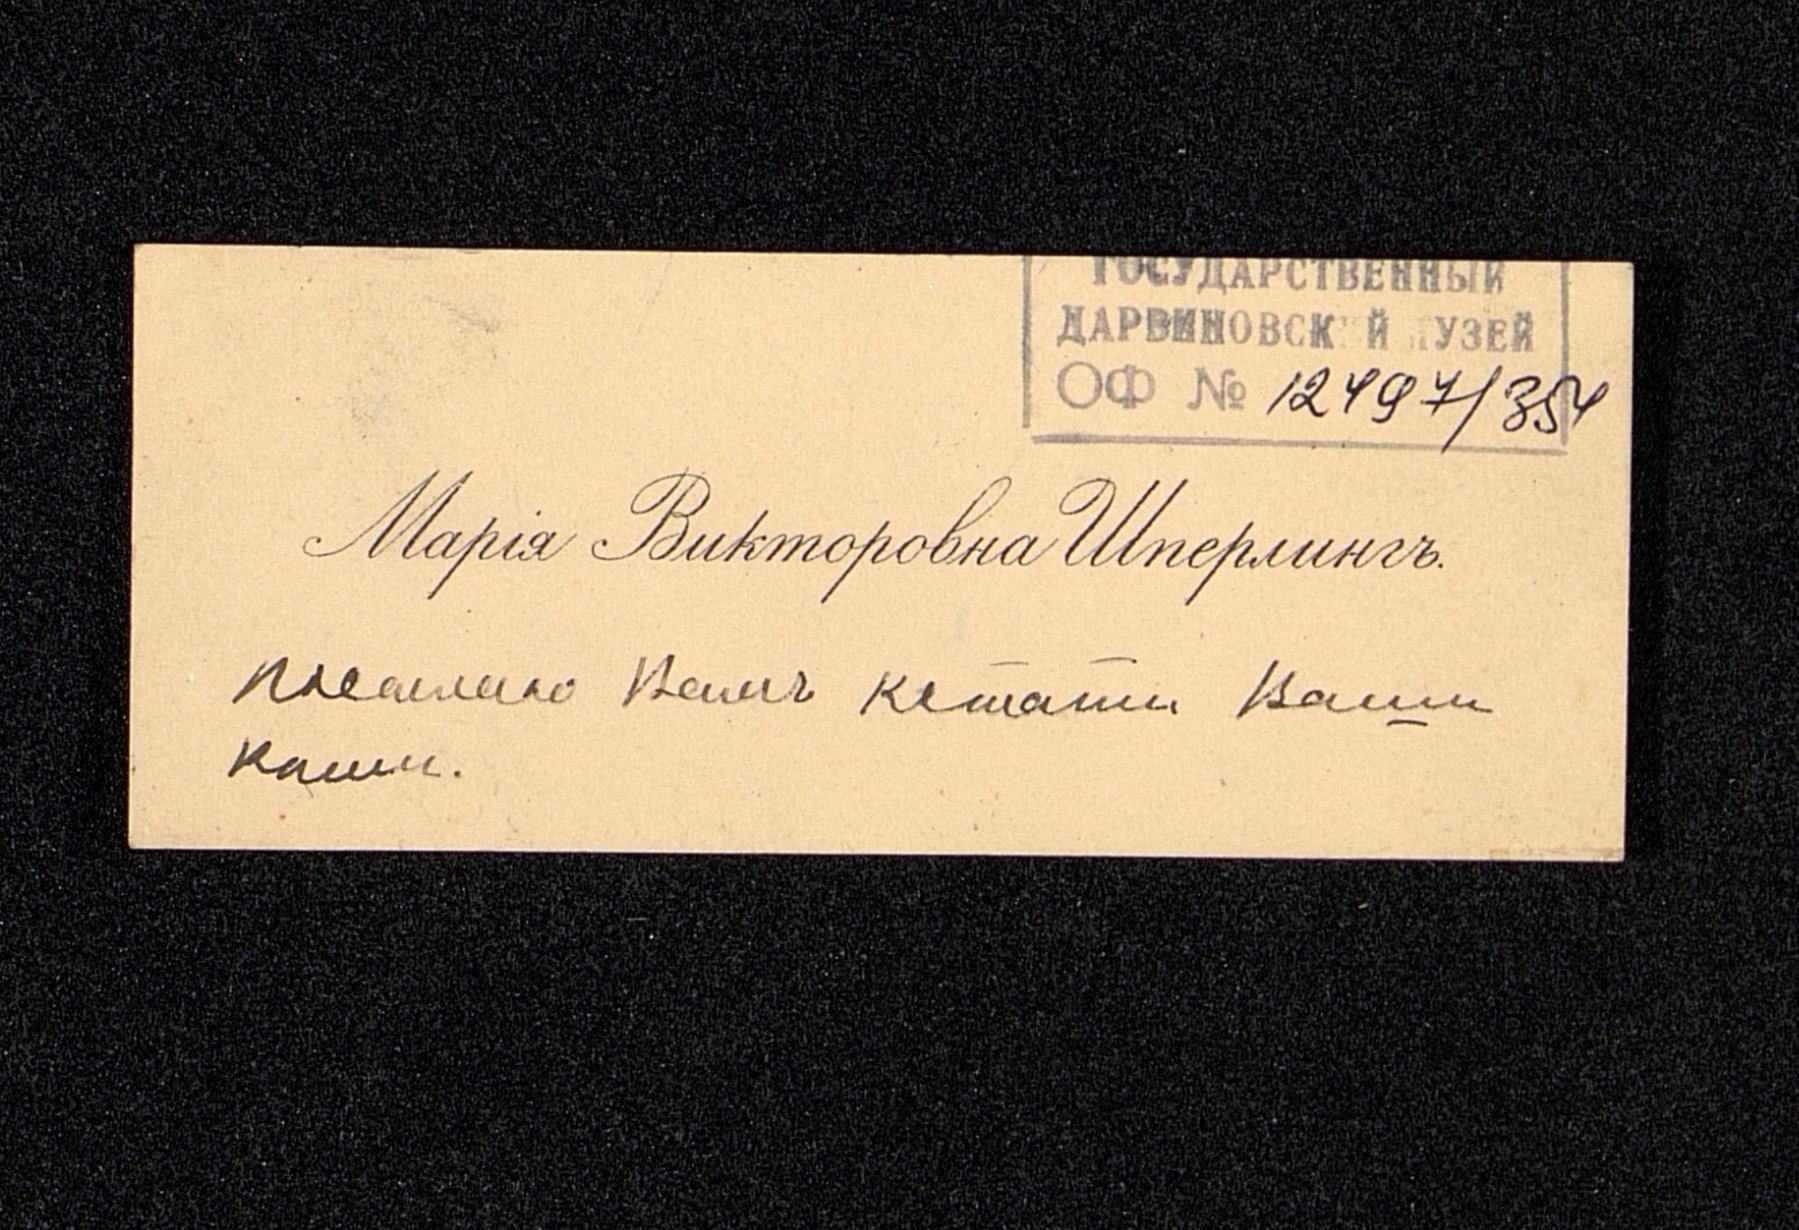 ГОСУДАРСТВЕННЫЙ
ДАРВИНОВСКИЙ МУЗЕЙ
ОФ № 12497/354
Марія Викторовна Шперлингъ.
Посылаю Вамъ кстати Ваши